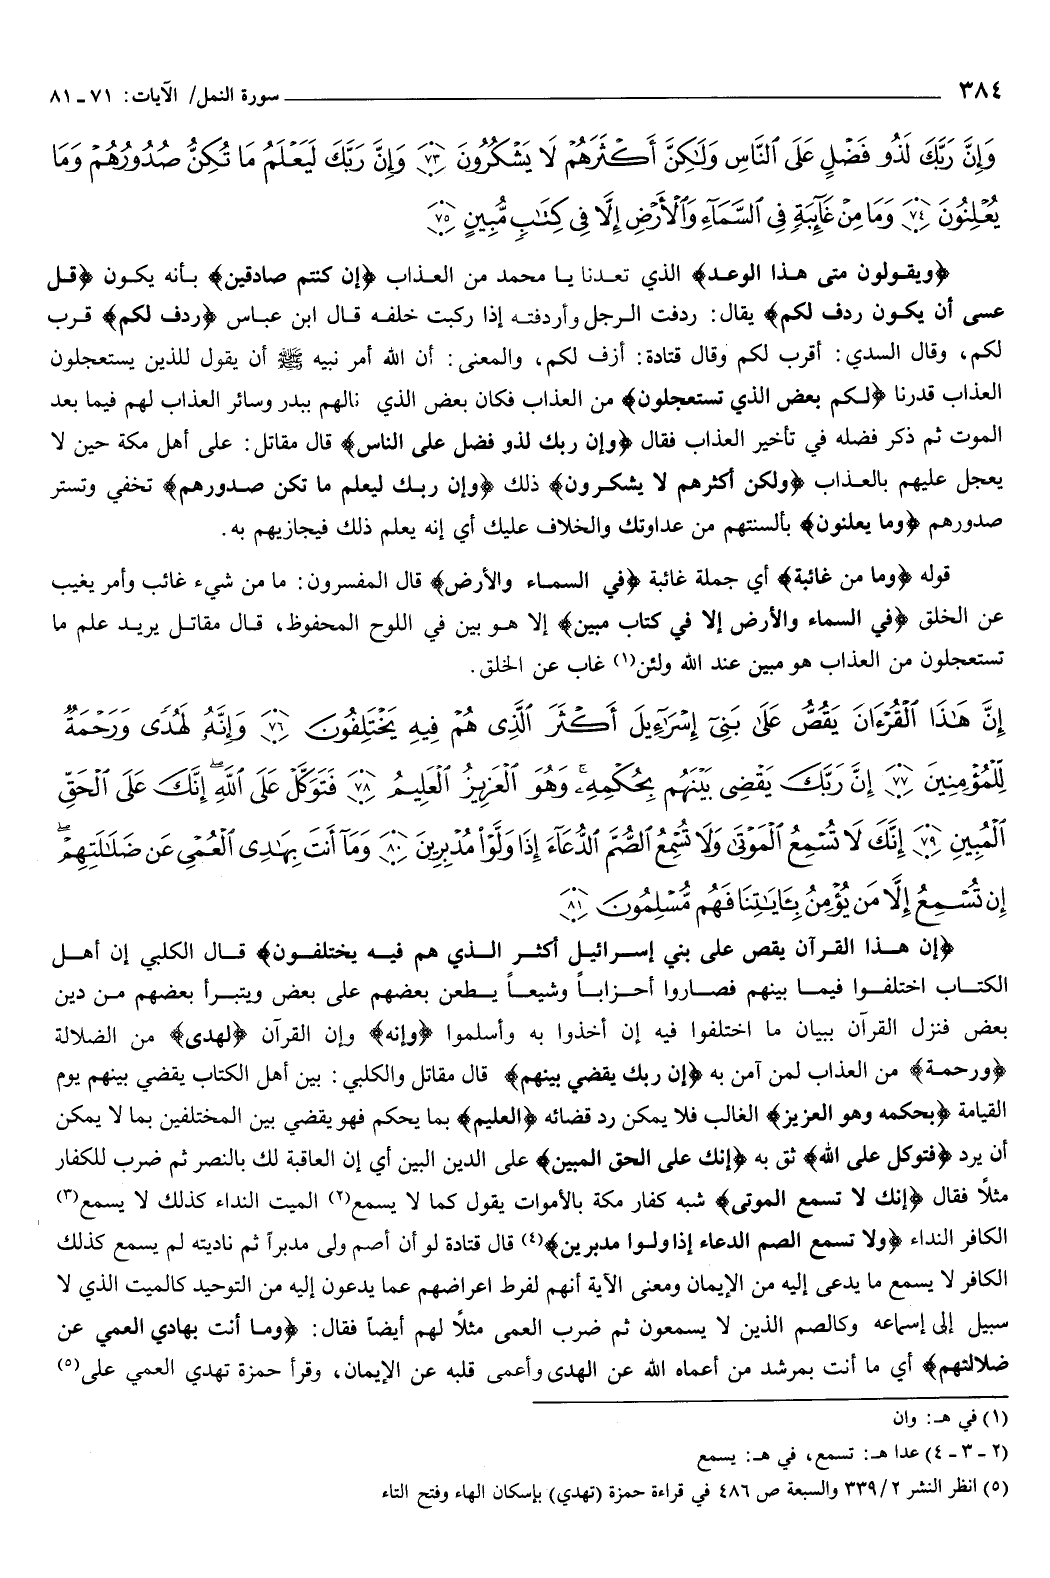 ٣٨٤ سورة النمل/ الآيات: ٧١ ـ ٨١
وَإِنَّ رَبَّكَ لَذُو فَضْلٍ عَلَى ٱلنَّاسِ وَلَٰكِنَّ أَكْثَرَهُمْ لَا يَشْكُرُونَ ﴿٧٣﴾ وَإِنَّ رَبَّكَ لَيَعْلَمُ مَا تُكِنُّ صُدُورُهُمْ وَمَا
يُعْلِنُونَ ﴿٧٤﴾ وَمَا مِنْ غَآئِبَةٍ فِى ٱلسَّمَآءِ وَٱلْأَرْضِ إِلَّا فِى كِتَٰبٍ مُّبِينٍ ﴿٧٥﴾
﴿ويقولون متى هذا الوعد﴾ الذي تعدنا يا محمد من العذاب ﴿إن كنتم صادقين﴾ بأنه يكون ﴿قل
عسى أن يكون ردف لكم﴾ يقال: ردفت الرجل وأردفته إذا ركبت خلفه قال ابن عباس ﴿ردف لكم﴾ قرب
لكم، وقال السدي: أقرب لكم وقال قتادة: أزف لكم، والمعنى: أن الله أمر نبيه ﷺ أن يقول للذين يستعجلون
العذاب قدرنا ﴿لكم بعض الذي تستعجلون﴾ من العذاب فكان بعض الذي نالهم ببدر وسائر العذاب لهم فيما بعد
الموت ثم ذكر فضله في تأخير العذاب فقال ﴿وإن ربك لذو فضل على الناس﴾ قال مقاتل: على أهل مكة حين لا
يعجل عليهم بالعذاب ﴿ولكن أكثرهم لا يشكرون﴾ ذلك ﴿وإن ربك ليعلم ما تكن صدورهم﴾ تخفي وتستر
صدورهم ﴿وما يعلنون﴾ بألسنتهم من عداوتك والخلاف عليك أي إنه يعلم ذلك فيجازيهم به.
قوله ﴿وما من غائبة﴾ أي جملة غائبة ﴿في السماء والأرض﴾ قال المفسرون: ما من شيء غائب وأمر يغيب
عن الخلق ﴿في السماء والأرض إلا في كتاب مبين﴾ إلا هو بين في اللوح المحفوظ، قال مقاتل يريد علم ما
تستعجلون من العذاب هو مبين عند الله ولئن(١) غاب عن الخلق.
إِنَّ هَٰذَا ٱلْقُرْءَانَ يَقُصُّ عَلَىٰ بَنِىٓ إِسْرَٰٓءِيلَ أَكْثَرَ ٱلَّذِى هُمْ فِيهِ يَخْتَلِفُونَ ﴿٧٦﴾ وَإِنَّهُۥ لَهُدًى وَرَحْمَةٌ
لِّلْمُؤْمِنِينَ ﴿٧٧﴾ إِنَّ رَبَّكَ يَقْضِى بَيْنَهُم بِحُكْمِهِۦ ۚ وَهُوَ ٱلْعَزِيزُ ٱلْعَلِيمُ ﴿٧٨﴾ فَتَوَكَّلْ عَلَى ٱللَّهِ ۖ إِنَّكَ عَلَى ٱلْحَقِّ
ٱلْمُبِينِ ﴿٧٩﴾ إِنَّكَ لَا تُسْمِعُ ٱلْمَوْتَىٰ وَلَا تُسْمِعُ ٱلصُّمَّ ٱلدُّعَآءَ إِذَا وَلَّوْا۟ مُدْبِرِينَ ﴿٨٠﴾ وَمَآ أَنتَ بِهَٰدِى ٱلْعُمْىِ عَن ضَلَٰلَتِهِمْ ۖ
إِن تُسْمِعُ إِلَّا مَن يُؤْمِنُ بِـَٔايَٰتِنَا فَهُم مُّسْلِمُونَ ﴿٨١﴾
﴿إن هذا القرآن يقص على بني إسرائيل أكثر الذي هم فيه يختلفون﴾ قال الكلبي إن أهل
الكتاب اختلفوا فيما بينهم فصاروا أحزاباً وشيعاً يطعن بعضهم على بعض ويتبرأ بعضهم من دين
بعض فنزل القرآن ببيان ما اختلفوا فيه إن أخذوا به وأسلموا ﴿وإنه﴾ وإن القرآن ﴿لهدى﴾ من الضلالة
﴿ورحمة﴾ من العذاب لمن آمن به ﴿إن ربك يقضي بينهم﴾ قال مقاتل والكلبي: بين أهل الكتاب يقضي بينهم يوم
القيامة ﴿بحكمه وهو العزيز﴾ الغالب فلا يمكن رد قضائه ﴿العليم﴾ بما يحكم فهو يقضي بين المختلفين بما لا يمكن
أن يرد ﴿فتوكل على الله﴾ ثق به ﴿إنك على الحق المبين﴾ على الدين البين أي إن العاقبة لك بالنصر ثم ضرب للكفار
مثلاً فقال ﴿إنك لا تسمع الموتى﴾ شبه كفار مكة بالأموات يقول كما لا يسمع(٢) الميت النداء كذلك لا يسمع(٣)
الكافر النداء ﴿ولا تسمع الصم الدعاء إذا ولوا مدبرين﴾(٤) قال قتادة لو أن أصم ولى مدبراً ثم ناديته لم يسمع كذلك
الكافر لا يسمع ما يدعى إليه من الإيمان ومعنى الآية أنهم لفرط اعراضهم عما يدعون إليه من التوحيد كالميت الذي لا
سبيل إلى إسماعه وكالصم الذين لا يسمعون ثم ضرب العمى مثلاً لهم أيضاً فقال: ﴿وما أنت بهادي العمي عن
ضلالتهم﴾ أي ما أنت بمرشد من أعماه الله عن الهدى وأعمى قلبه عن الإيمان، وقرأ حمزة تهدي العمي على(٥)
(١) في هـ: وان
(٢ - ٣ - ٤) عدا هـ: تسمع، في هـ: يسمع
(٥) انظر النشر ٢/ ٣٣٩ والسبعة ص ٤٨٦ في قراءة حمزة (تهدي) بإسكان الهاء وفتح التاء